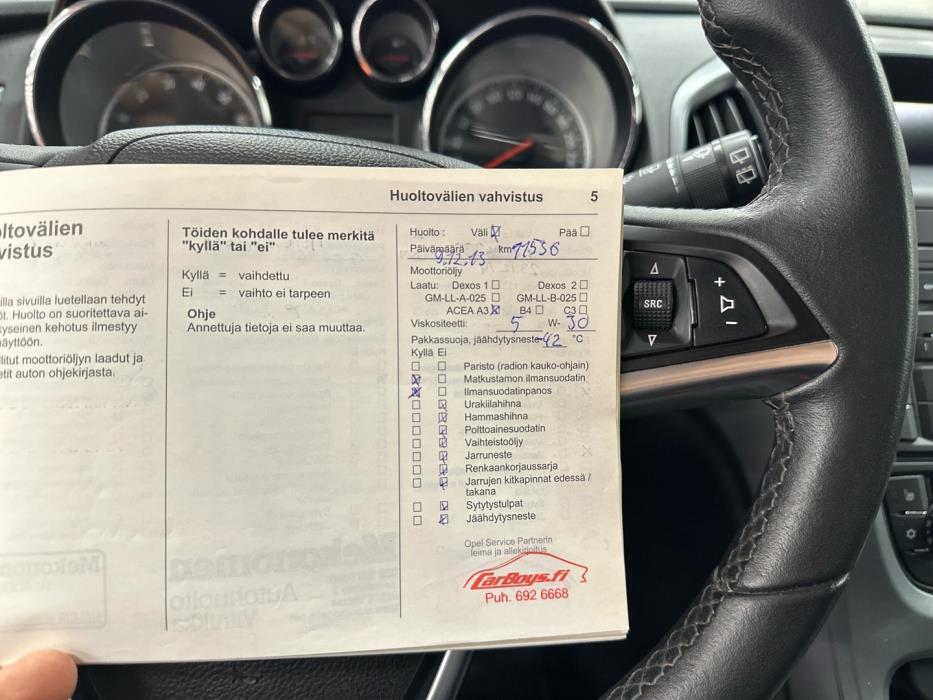 Huoltovälien vahvistus 5
oltovälien
vistus
illa sivuilla luetellaan tehdyt
öt. Huolto on suoritettava ai-
kyseinen kehotus ilmestyy
näyttöön.
litut moottoriöljyn laadut ja
etit auton ohjekirjasta.
Töiden kohdalle tulee merkitä
"kyllä" tai "ei"
Kyllä = vaihdettu
Ei = vaihto ei tarpeen
Ohje
Annettuja tietoja ei saa muuttaa.
Huolto : Väli Pää
Päivämäärä km 71536
9.12.13
Moottoriöljy
Laatu: Dexos 1 Dexos 2
GM-LL-A-025 GM-LL-B-025
ACEA A3 B4 C3
Viskositeetti: 5 W- 30
Pakkassuoja, jäähdytysneste -42 °C
Kyllä Ei
Paristo (radion kauko-ohjain)
Matkustamon ilmansuodatin
Ilmansuodatinpanos
Urakiilahihna
Hammashihna
Polttoainesuodatin
Vaihteistoöljy
Jarruneste
Renkaankorjaussarja
Jarrujen kitkapinnat edessä /
takana
Sytytystulpat
Jäähdytysneste
Opel Service Partnerin
leima ja allekirjoitus
CarBoys.fi
Puh. 692 6668
SRC
+
−